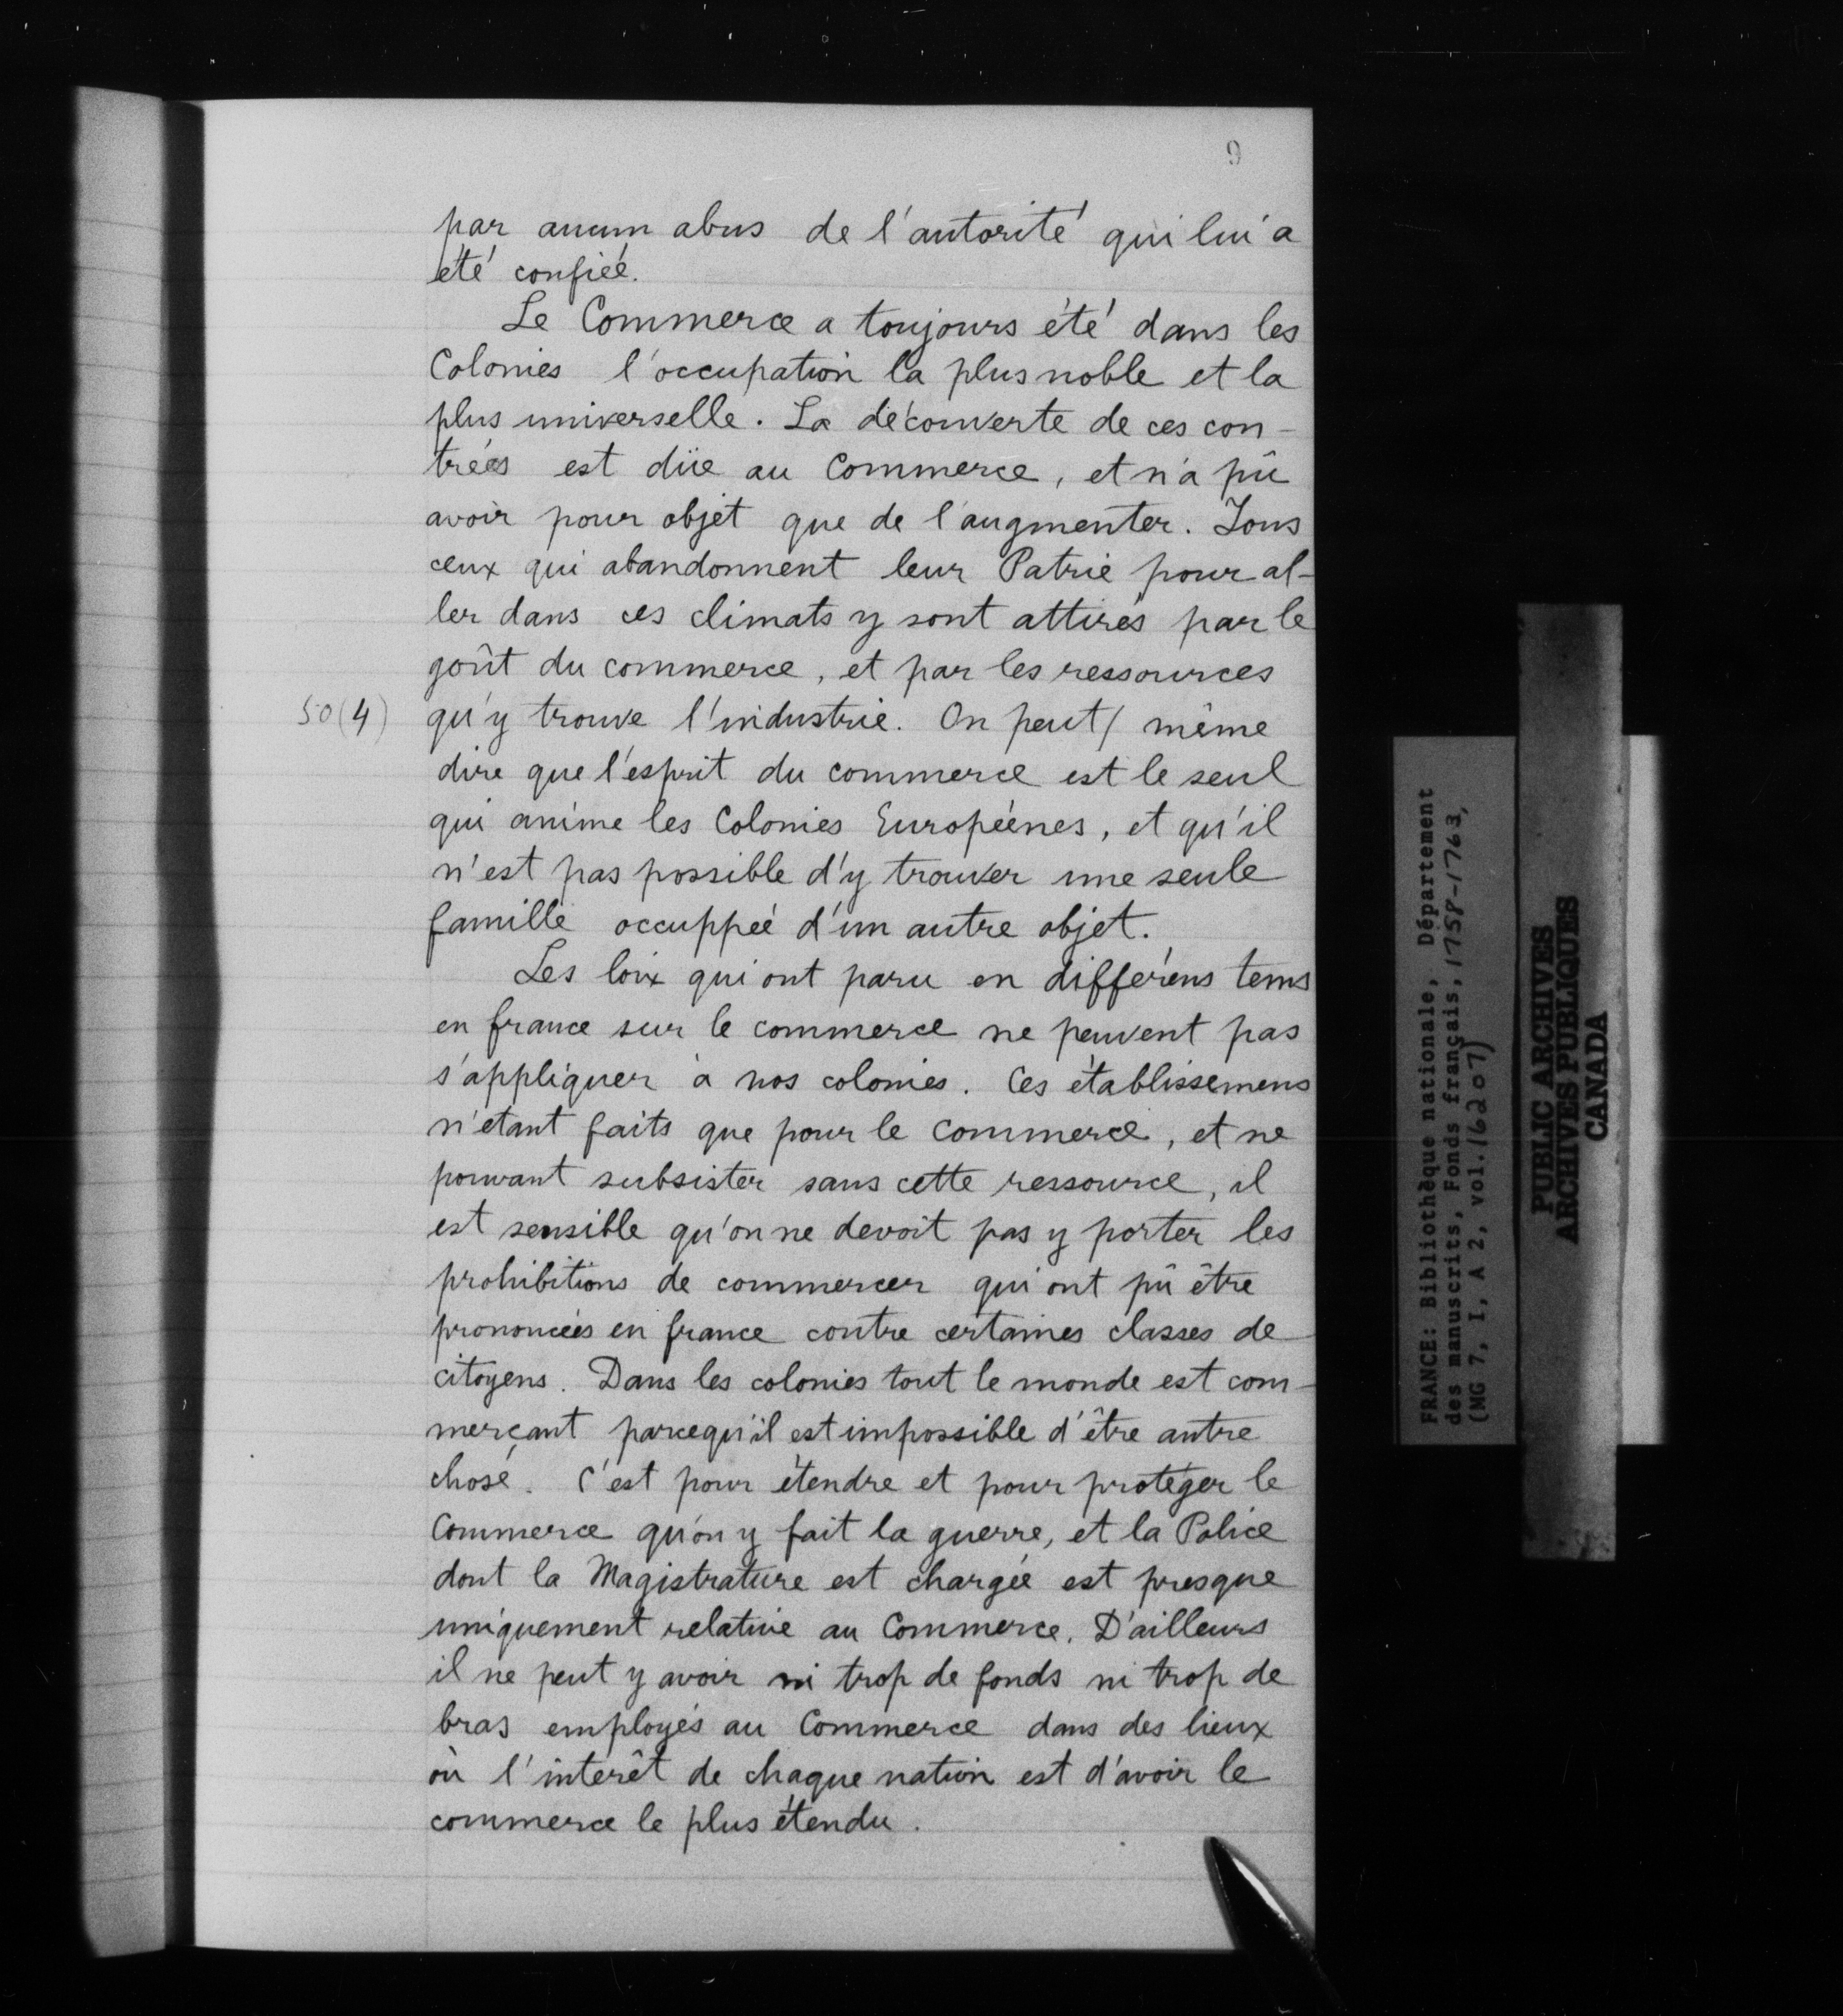 9
par aucun abus de l'autorité qui lui a
été confiée.
Le Commerce a toujours été dans les
Colonies l'occupation la plus noble et la
plus universelle. La découverte de ces con-
trées est düe au Commerce, et n'a pû
avoir pour objet que de l'augmenter. Tous
ceux qui abandonnent leur Patrie pour al-
ler dans ces climats y sont attirés par le
goût du commerce, et par les ressources
50(4) qu'y trouve l'industrie. On peut/ même
dire que l'esprit du commerce est le seul
qui anime les Colonies Européenes, et qu'il
n'est pas possible d'y trouver une seule
famille occuppée d'un autre objet.
Les loix qui ont paru en différens tems
en france sur le commerce ne peuvent pas
s'appliquer à nos colonies. Ces établissemens
n'étant faits que pour le Commerce, et ne
pouvant subsister sans cette ressource, il
est sensible qu'on ne devoit pas y porter les
prohibitions de commercer qui ont pû être
prononcées en france contre certaines classes de
citoyens. Dans les colonies tout le monde est com-
merçant parcequ'il est impossible d'être autre
chose. C'est pour étendre et pour protéger le
Commerce qu'on y fait la guerre, et la Police
dont la Magistrature est chargée est presque
uniquement relative au Commerce. D'ailleurs
il ne peut y avoir ni trop de fonds ni trop de
bras employés au Commerce dans des lieux
où l'intérêt de chaque nation est d'avoir le
commerce le plus étendu.
FRANCE: Bibliothèque nationale, Département
des manuscrits, Fonds français, 1758-1763,
(MG 7, I, A 2, vol. 16207)
PUBLIC ARCHIVES
ARCHIVES PUBLIQUES
CANADA